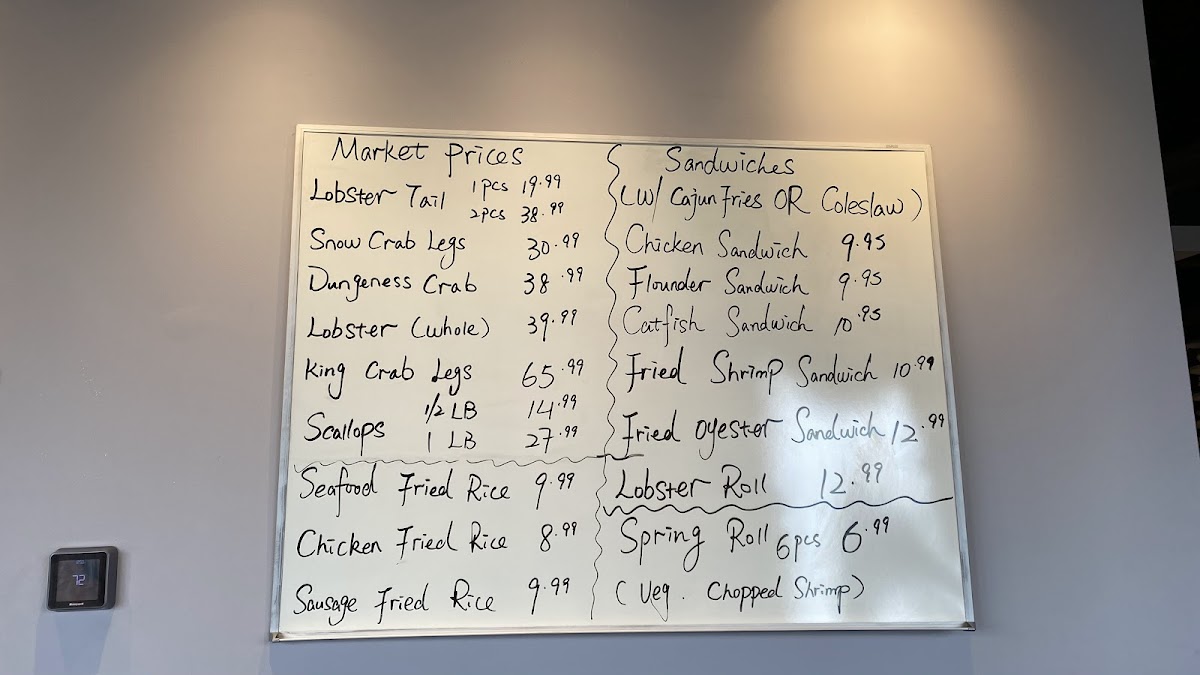 Market Prices
Lobster Tail 1pcs 19.99
2pcs 38.99
Snow Crab Legs 30.99
Dungeness Crab 38.99
Lobster (whole) 39.99
King Crab Legs 65.99
Scallops 1/2 LB 14.99
1 LB 27.99
Seafood Fried Rice 9.99
Chicken Fried Rice 8.99
Sausage Fried Rice 9.99
Sandwiches
(W/ Cajun Fries OR Coleslaw)
Chicken Sandwich 9.95
Flounder Sandwich 9.95
Catfish Sandwich 10.95
Fried Shrimp Sandwich 10.99
Fried Oyester Sandwich 12.99
Lobster Roll 12.99
Spring Roll 6pcs 6.99
(Veg. Chopped Shrimp)
72
Honeywell